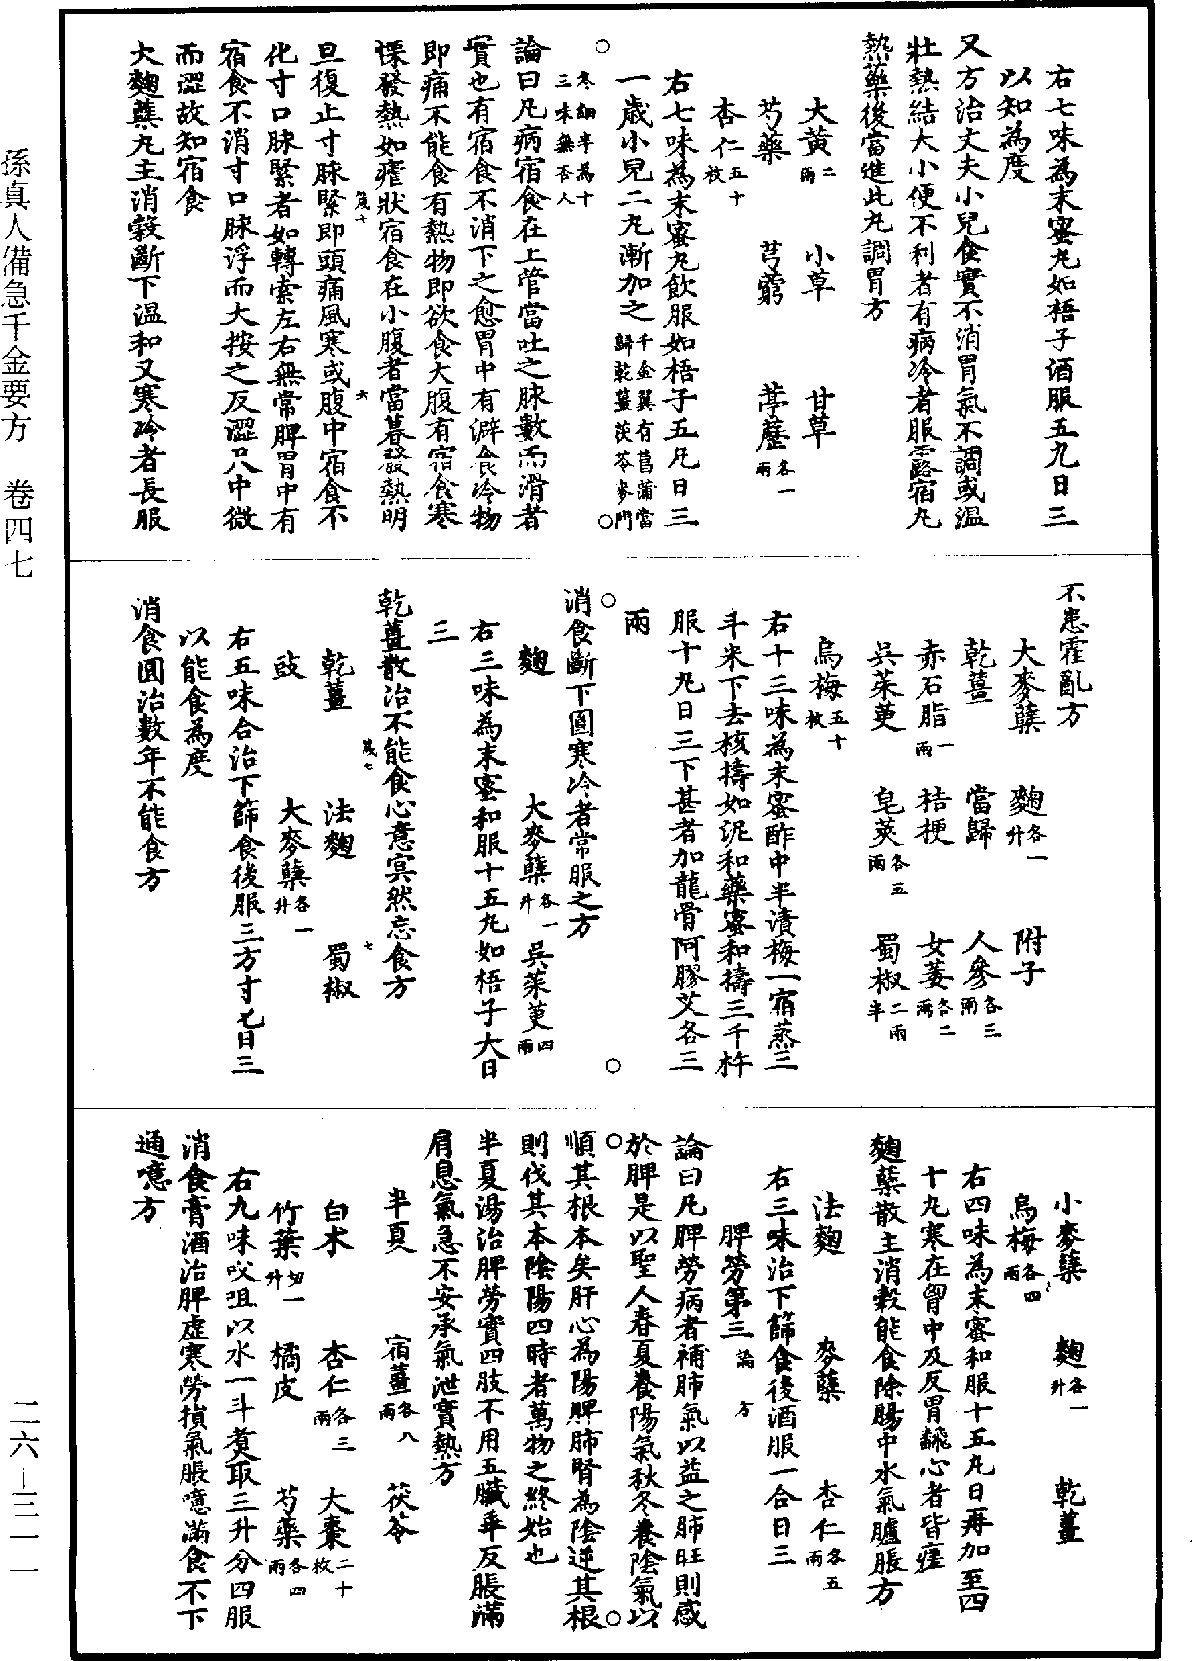 右七味為末蜜丸如梧子酒服五丸日三
以知為度
又方治丈夫小兒食實不消胃氣不調或温
壯熱結大小便不利者有病冷者服露宿丸
熱藥後當進此丸調胃方
大黄二兩 小草 甘草
芍藥 芎藭 葶藶各一兩
杏仁五十枚
右七味為末蜜丸飲服如梧子五丸日三
一歲小兒二丸漸加之千金翼有菖蒲當歸乾薑茯苓麥門
冬細辛為十三味無杏人
論曰凡病宿食在上管當吐之脉數而滑者
實也有宿食不消下之愈胃中有澼食冷物
即痛不能食有熱物即欲食大腹有宿食寒
慄發熱如瘧狀宿食在小腹者當暮發熱明
旦復止寸脉緊即頭痛風寒或腹中宿食不
化寸口脉緊者如轉索左右無常脾胃中有
宿食不消寸口脉浮而大按之反澀尺中微
而澀故知宿食
大麴蘖丸主消穀斷下温和又寒冷者長服
不患霍亂方
大麥蘖 麴各一升 附子
乾薑 當歸 人參各三兩
赤石脂一兩 桔梗 女萎各二兩
吳茱萸 皂莢各五兩 蜀椒二兩半
烏梅五十枚
右十三味為末蜜酢中半漬梅一宿蒸三
斗米下去核擣如泥和藥蜜和擣三千杵
服十丸日三下甚者加龍骨阿膠艾各三
兩
消食斷下圓寒冷者常服之方
麴 大麥蘖各一升 吳茱萸四兩
右三味為末蜜和服十五丸如梧子大日
三
乾薑散治不能食心意冥然忘食方
乾薑 法麴 蜀椒
豉 大麥蘖各一升
右五味合治下篩食後服三方寸匕日三
以能食為度
消食圓治數年不能食方
小麥蘖 麴各一升 乾薑
烏梅各四兩
右四味為末蜜和服十五丸日再加至四
十丸寒在胷中及反胃飜心者皆瘥
麴蘖散主消穀能食除腸中水氣臚脹方
法麴 麥蘖 杏仁各五兩
右三味治下篩食後酒服一合日三
脾勞第三論 方
論曰凡脾勞病者補肺氣以益之肺旺則感
於脾是以聖人春夏養陽氣秋冬養陰氣以
順其根本矣肝心為陽脾肺腎為陰逆其根
則伐其本陰陽四時者萬物之終始也
半夏湯治脾勞實四肢不用五臟乖反脹滿
肩息氣急不安承氣泄實熱方
半夏 宿薑各八兩 茯苓
白朮 杏仁各三兩 大棗二十枚
竹葉切一升 橘皮 芍藥各四兩
右九味㕮咀以水一斗煑取三升分四服
消食膏酒治脾虛寒勞損氣脹噫滿食不下
通噫方
孫真人備急千金要方 卷四七
二六—三一一